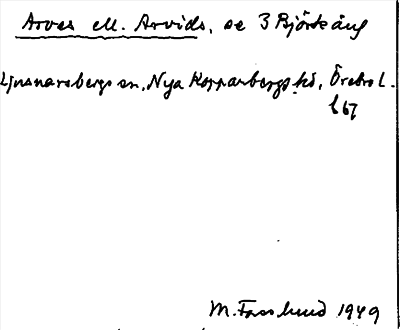 Arves ell. Arvids, se 3 Björkäng
Ljusnarsbergs sn, Nya Kopparbergs hd, Örebro l.
b 67
M. Fasslund 1949